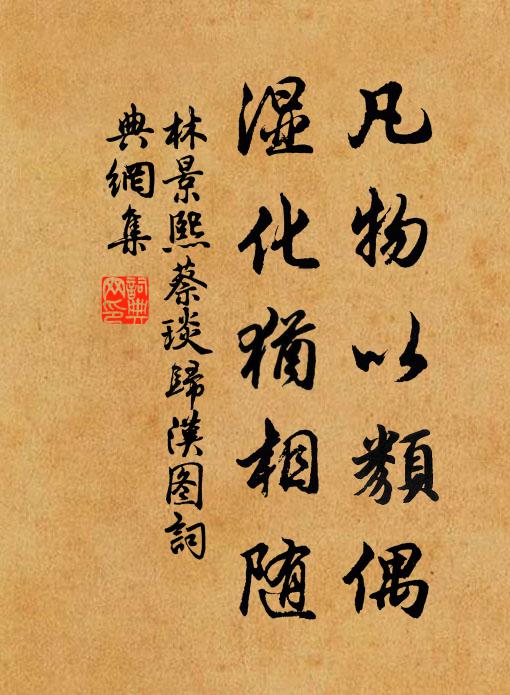 凡物以類偶
濕化猶相随
林景熙蔡琰歸漢图詞
典網集
詞典网印